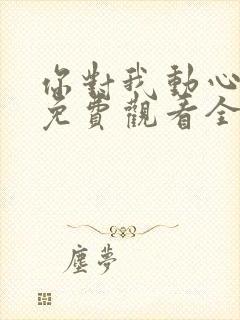 你對我動心
免費觀看全
塵夢